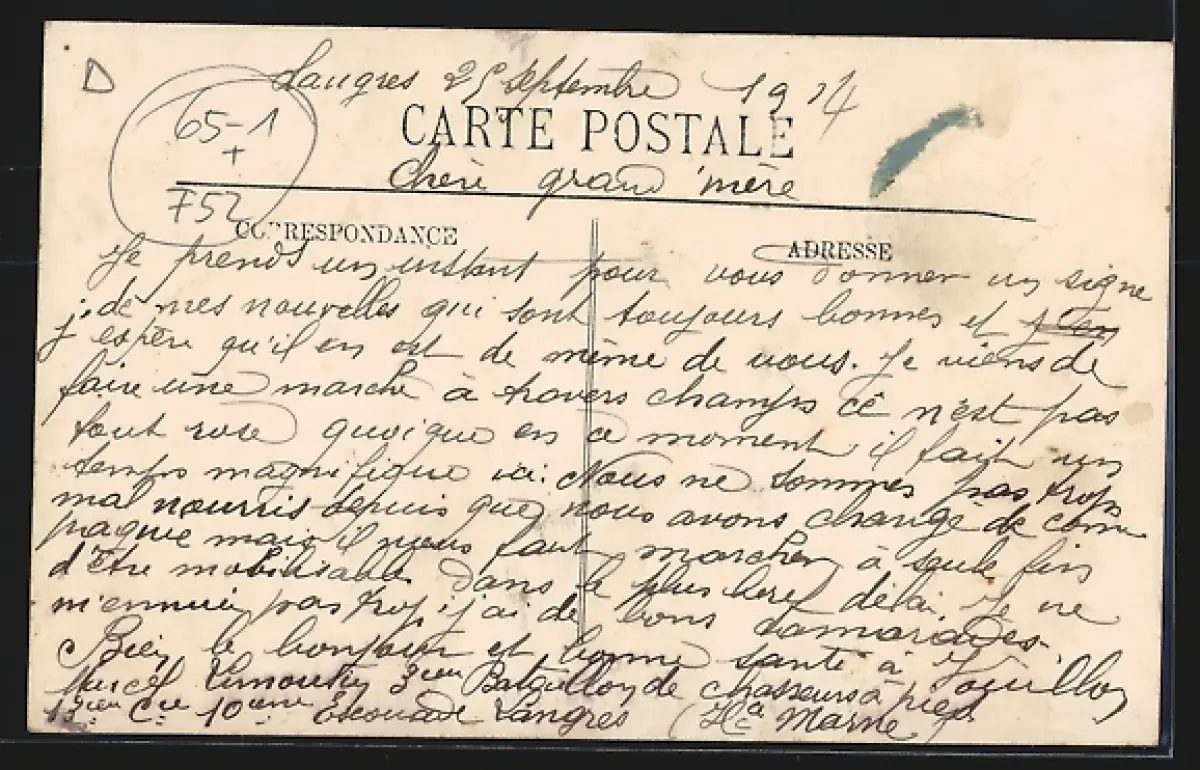 D
Langres 25 Septembre 1914
65-1
+
F52
CARTE POSTALE
Chère grand'mère
CORRESPONDANCE
ADRESSE
Je prends un instant pour vous donner un signe
de mes nouvelles qui sont toujours bonnes et
j'espère qu'il en est de même de vous. Je viens de
faire une marche à travers champs ce n'est pas
tout rose quoique en ce moment il fait un
temps magnifique ici. Nous ne sommes pas trop
mal nourris depuis que nous avons changé de com
pagnie mais il nous faut marcher à seule fin
d'être mobilisable dans le plus bref délai. Je ne
m'ennuie pas trop j'ai de bons camarades.
Bien le bonjour et bonne santé à
Marcel 3ieme Bataillon de chasseurs à pied
Cie 10eme Escouade Langres (Hte Marne)